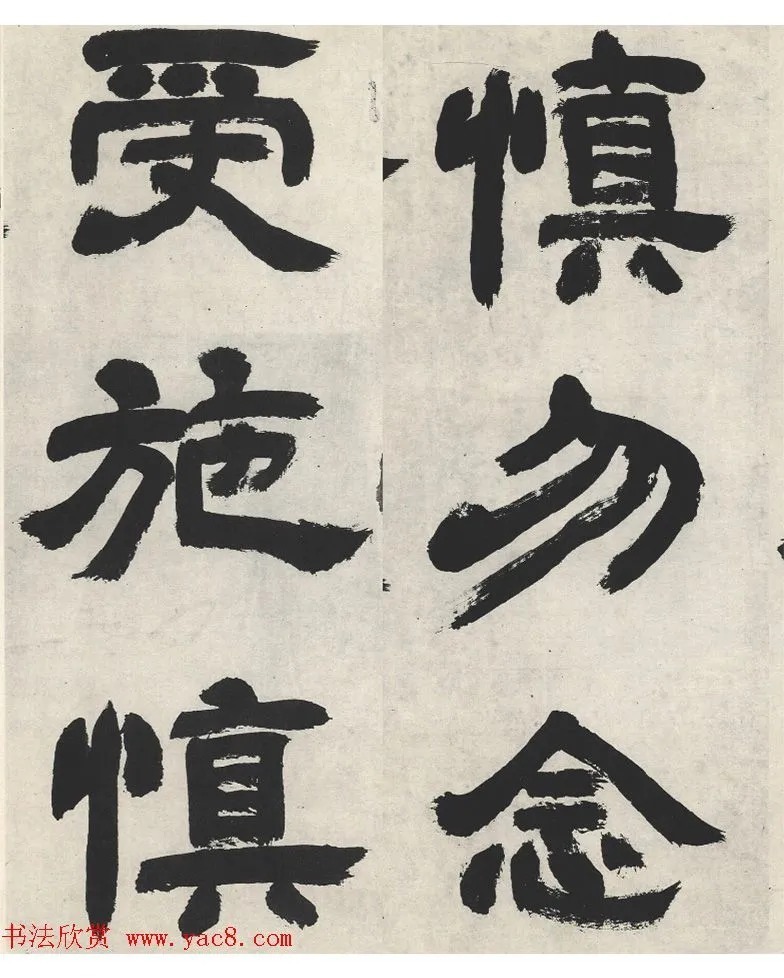 慎勿念
受施慎
书法欣赏 www.yac8.com